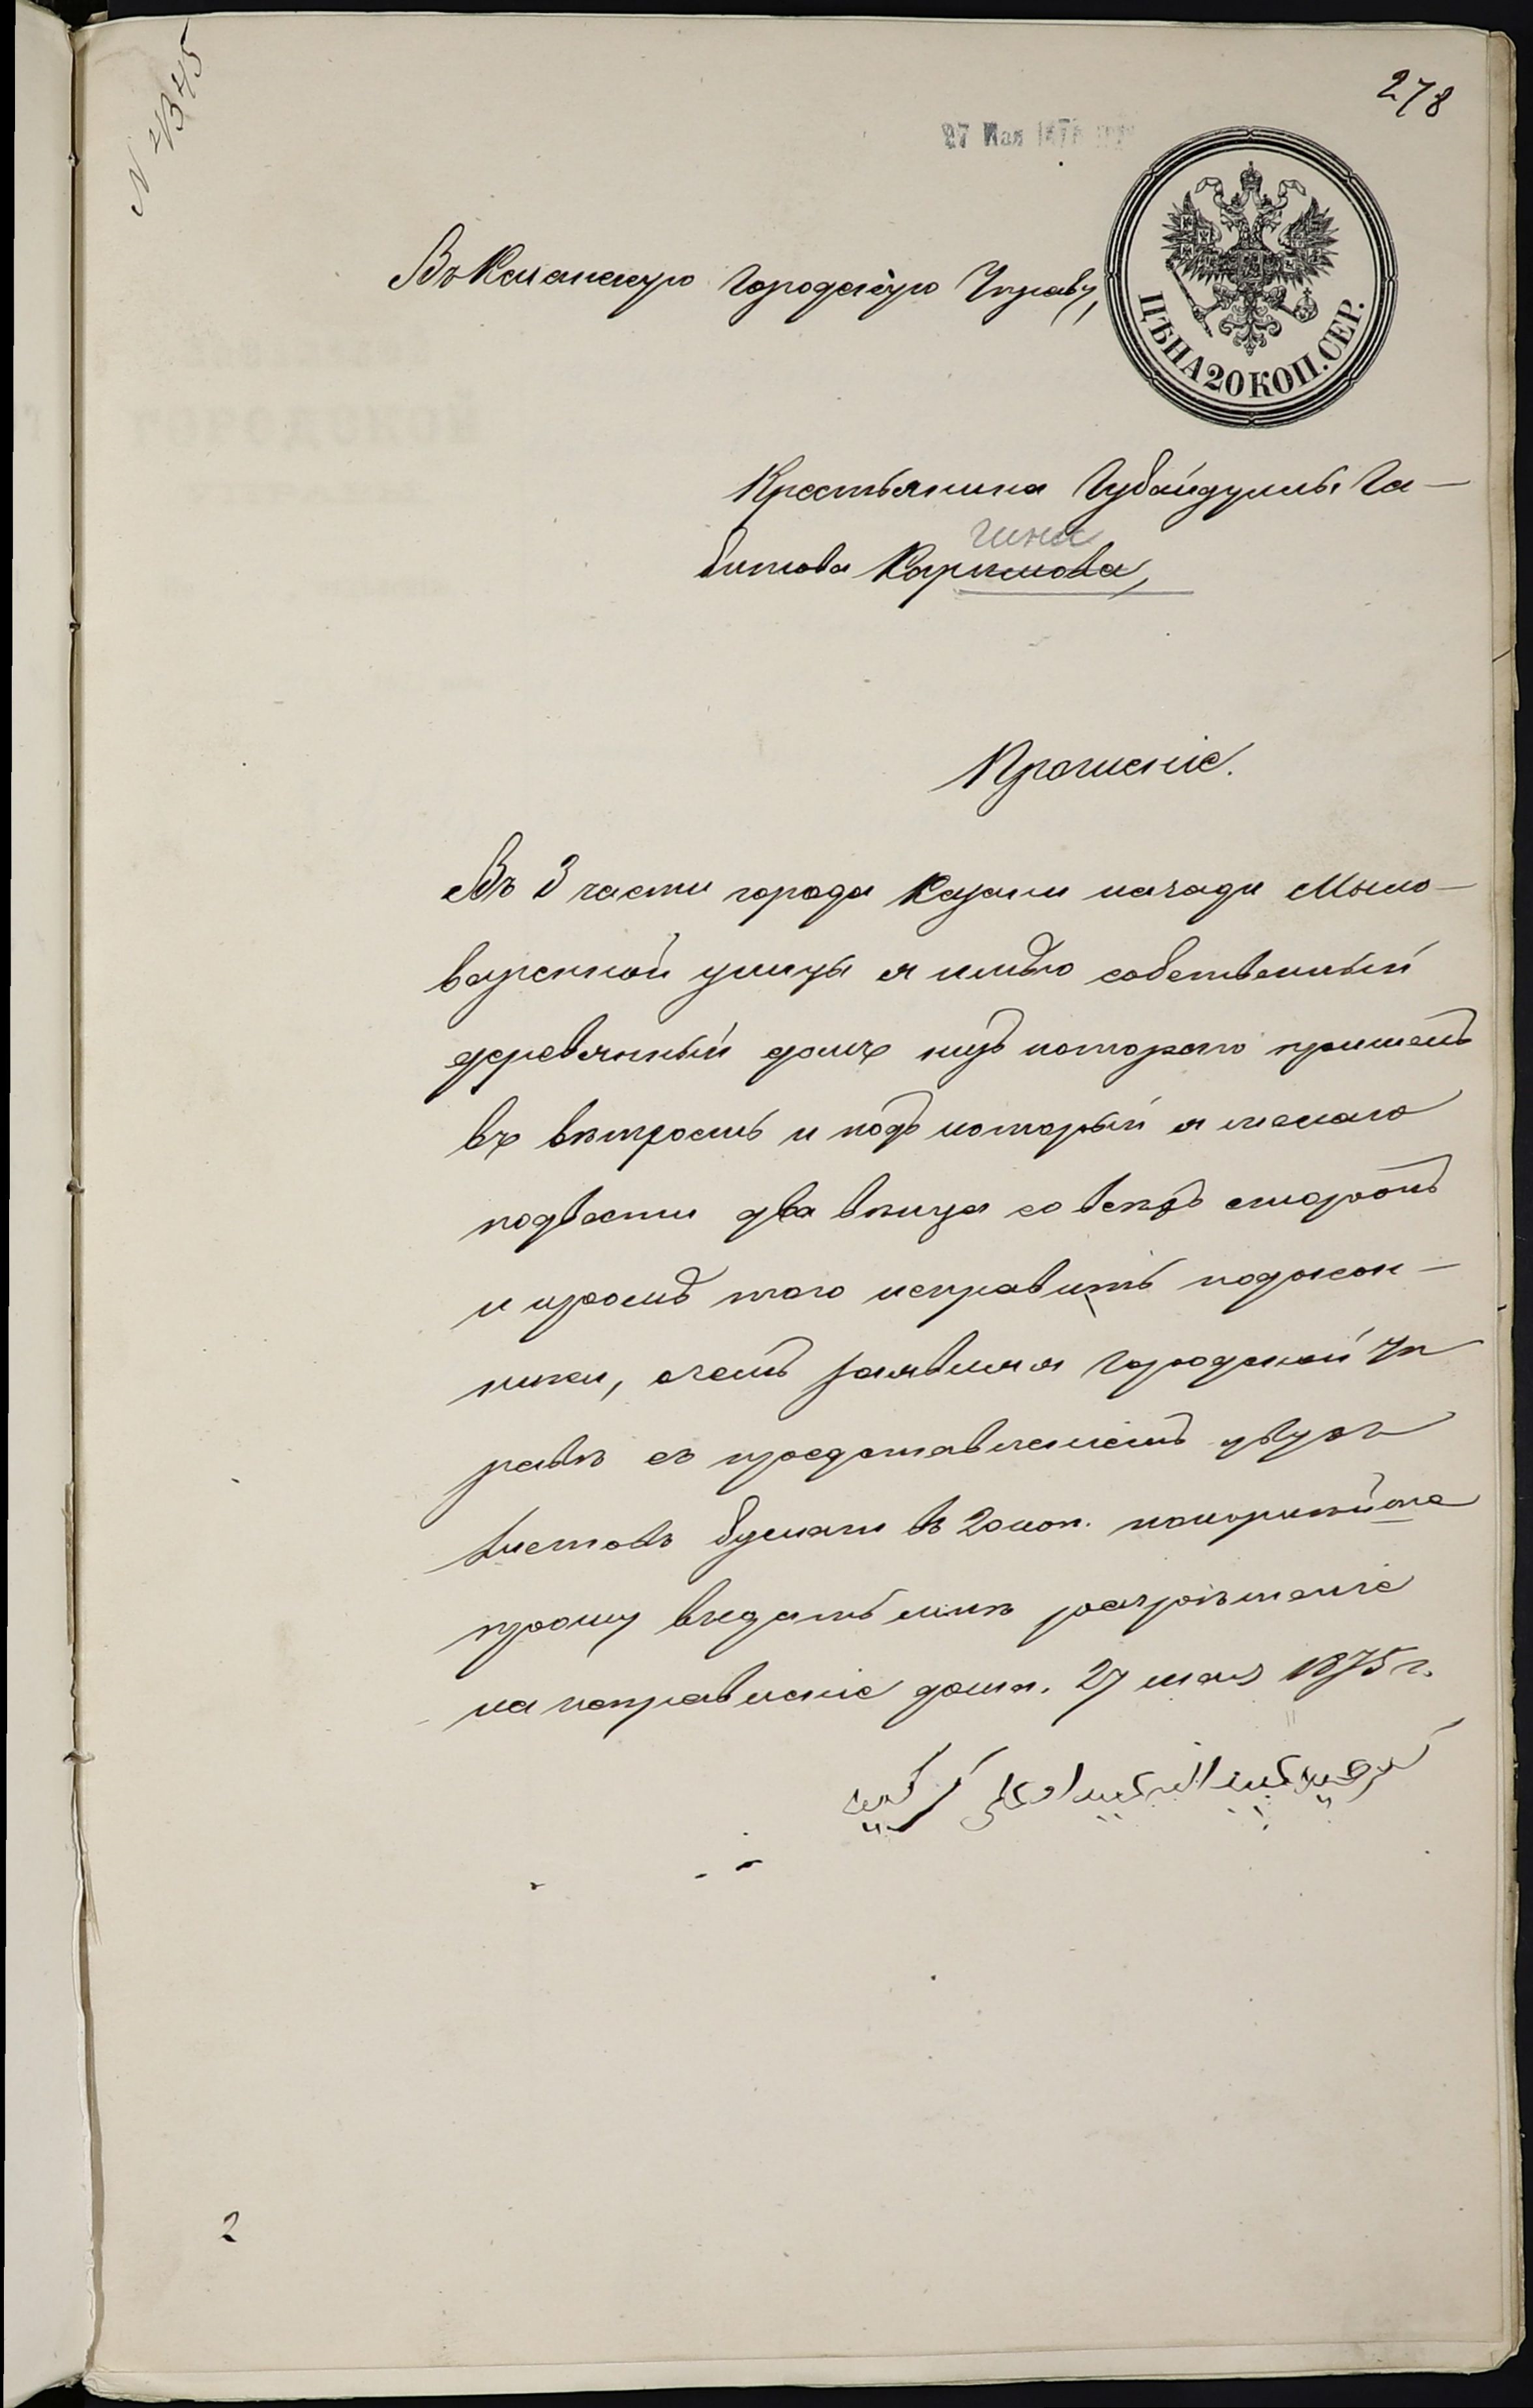 N 4345
278
27 Мая 1875
Въ Казанскую Городскую Управу,
ЦѢНА 20 КОП. СЕР.
Крестьянина Губайдуллы Га-
гина
битова Каримова,
Прошеніе.
Въ 3 части города Казани позади Мыло-
варенной улицы я имѣю собственный
деревянный домъ низъ котораго пришелъ
въ вѣтхость и подъ который я желаю
подвести два вѣнца со всѣхъ сторонъ
и кромѣ того исправить подокон-
ники, о чемъ заявляя Городской Уп
равѣ съ представленіемъ двухъ
листовъ бумаги въ 20 коп. покорнѣйше
прошу выдать мнѣ разрѣшеніе
на исправленіе дома. 27 мая 1875 г.
2